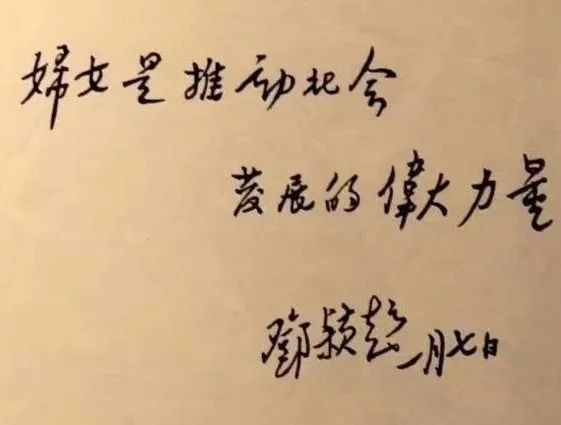 婦女是推动社会
发展的偉大力量
鄧颖超一月七日